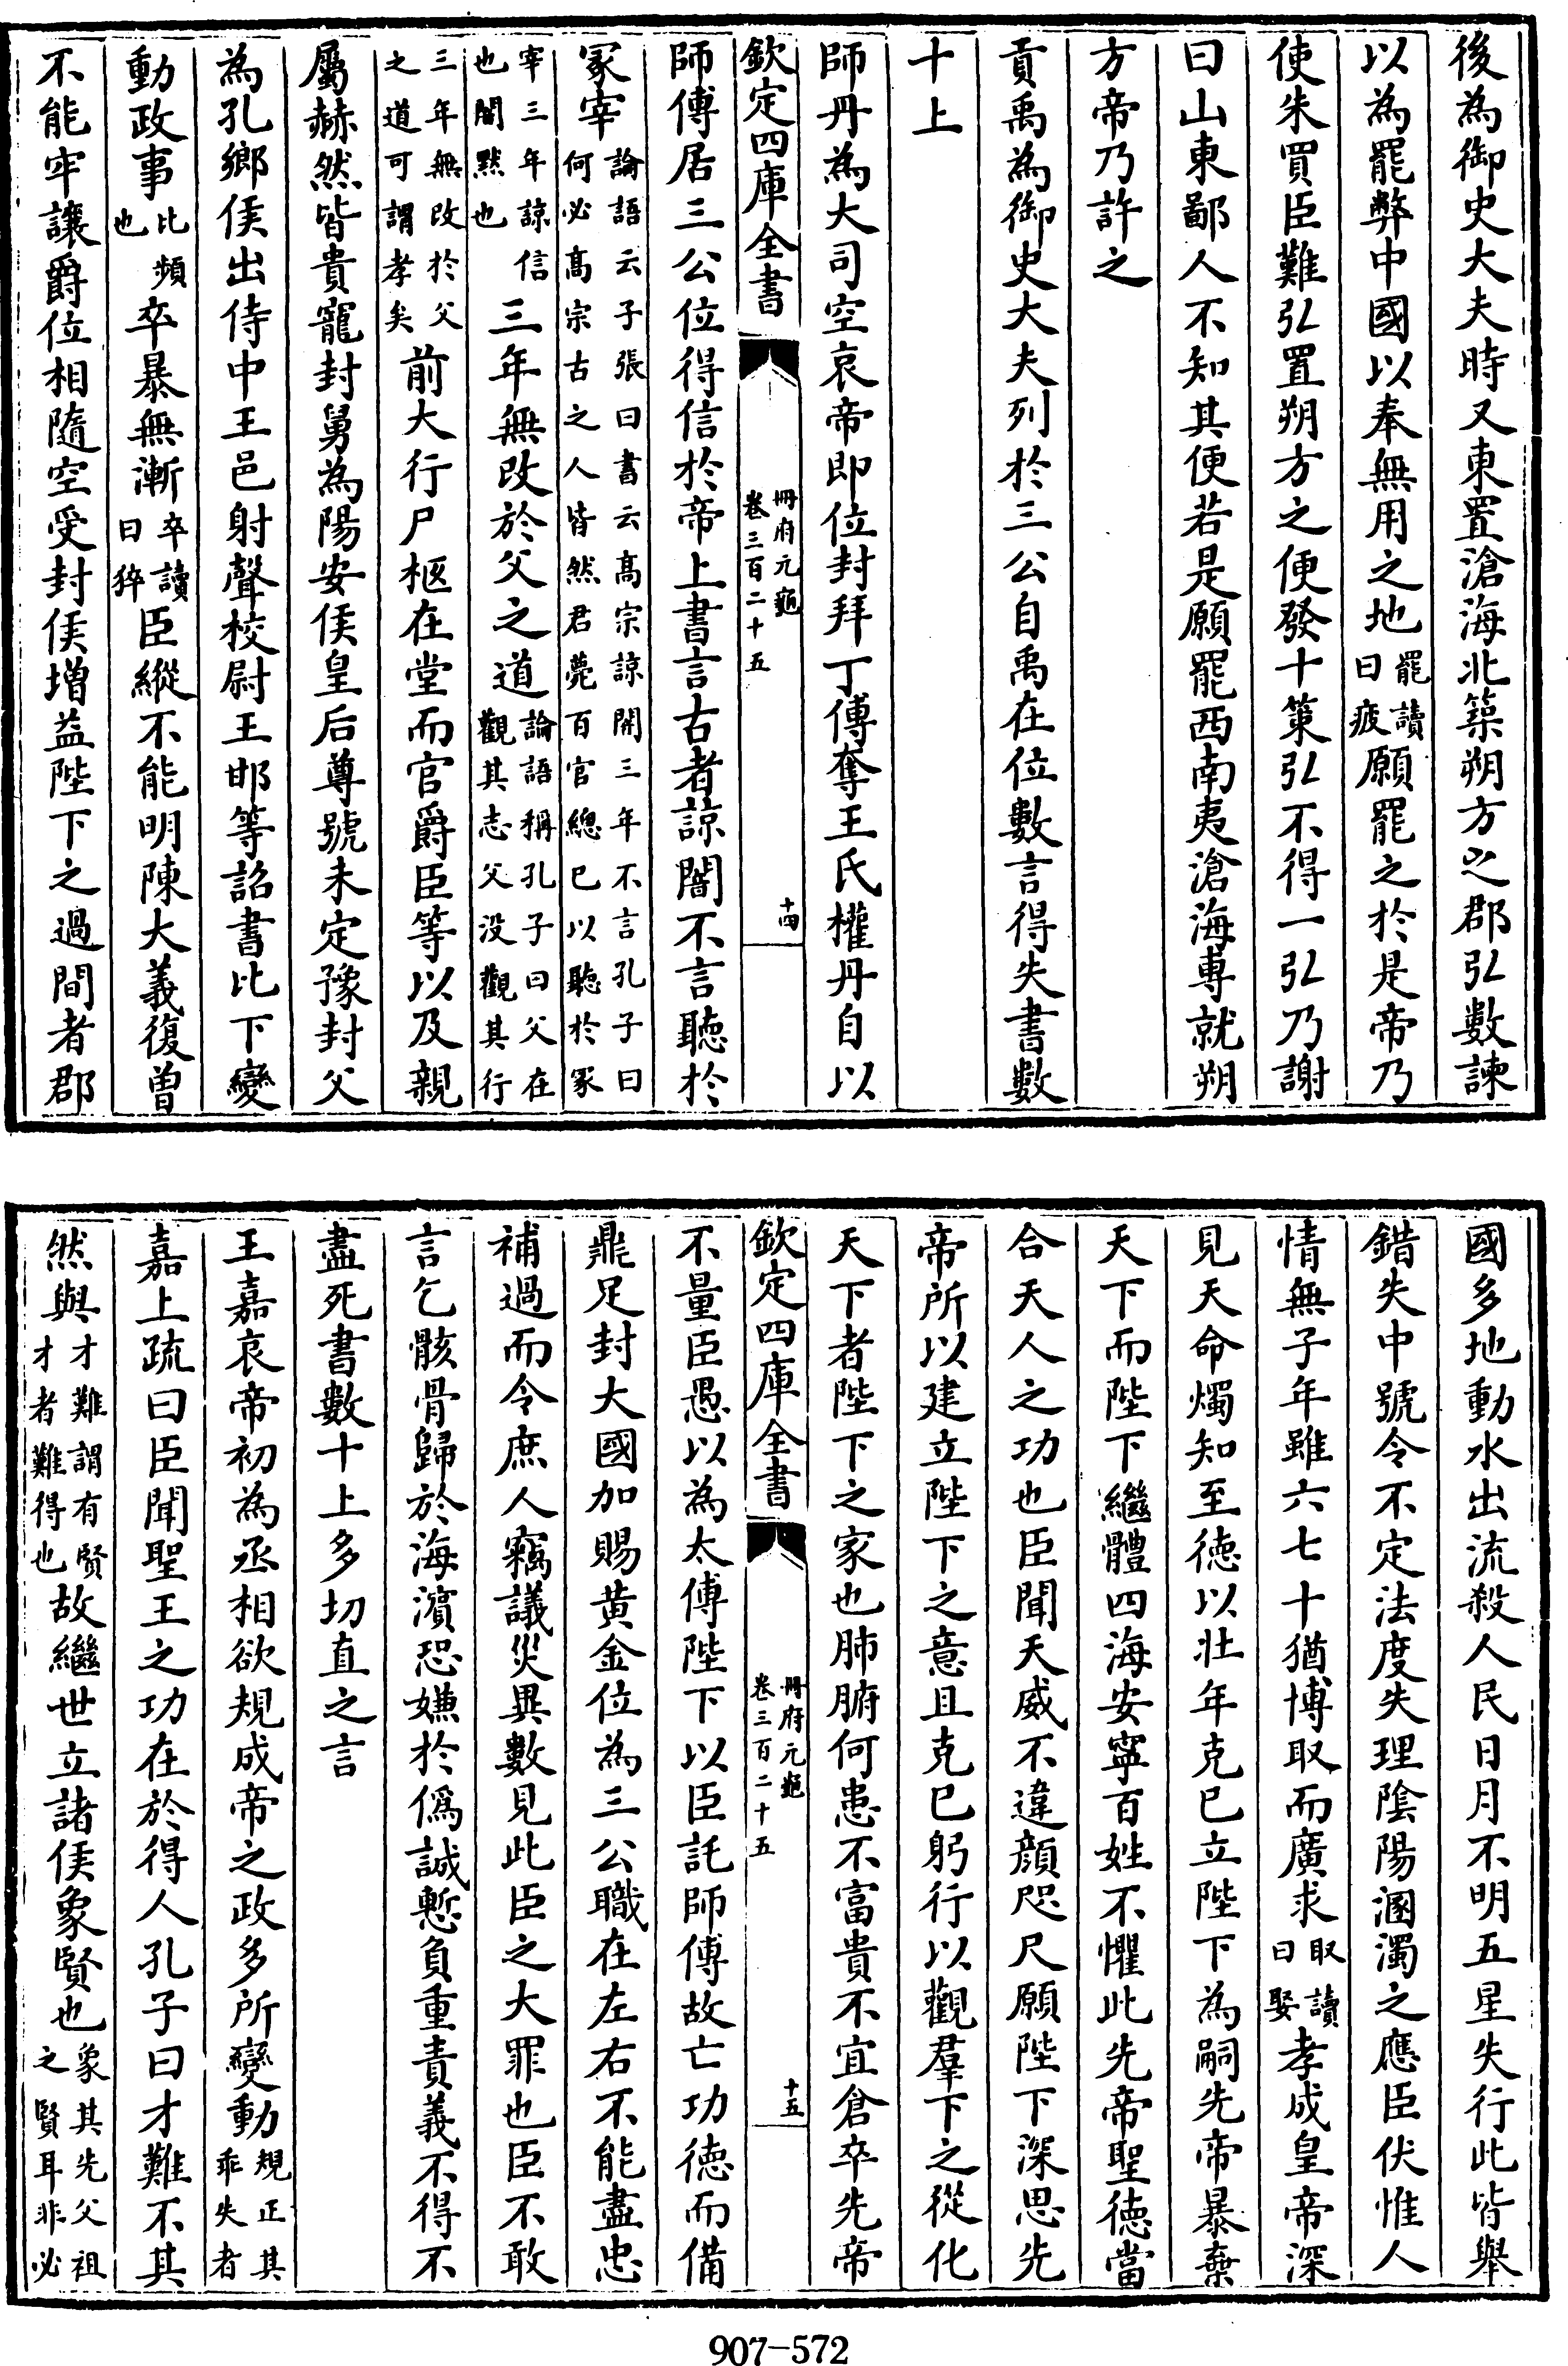 後為御史大夫時又東置滄海北築朔方之郡弘數諫
以為罷弊中國以奉無用之地罷讀曰疲願罷之於是帝乃
使朱買臣難弘置朔方之便發十策弘不得一弘乃謝
曰山東鄙人不知其便若是願罷西南夷滄海專就朔
方帝乃許之
貢禹為御史大夫列於三公自禹在位數言得失書數
十上
師丹為大司空哀帝即位封拜丁傅奪王氏權丹自以
欽定四庫全書 冊府元龜 卷三百二十五 十四
師傅居三公位得信於帝上書言古者諒闇不言聽於
冢宰論語云子張曰書云高宗諒闇三年不言孔子曰何必高宗古之人皆然君薨百官總已以聽於冢
宰三年諒信也闇黙也三年無改於父之道論語稱孔子曰父在觀其志父没觀其行
三年無改於父之道可謂孝矣前大行尸柩在堂而官爵臣等以及親
屬赫然皆貴寵封舅為陽安侯皇后尊號未定豫封父
為孔鄉侯出侍中王邑射聲校尉王邯等詔書比下變
動政事比頻也卒暴無漸卒讀曰猝臣縱不能明陳大義復曾
不能牢讓爵位相隨空受封侯増益陛下之過間者郡
國多地動水出流殺人民日月不明五星失行此皆舉
錯失中號令不定法度失理陰陽溷濁之應臣伏惟人
情無子年雖六七十猶博取而廣求取讀曰娶孝成皇帝深
見天命燭知至徳以壯年克已立陛下為嗣先帝暴棄
天下而陛下繼體四海安寧百姓不懼此先帝聖徳當
合天人之功也臣聞天威不違顔咫尺願陛下深思先
帝所以建立陛下之意且克已躬行以觀羣下之從化
天下者陛下之家也肺腑何患不富貴不宜倉卒先帝
欽定四庫全書 冊府元龜 卷三百二十五 十五
不量臣愚以為太傅陛下以臣託師傅故亡功徳而備
鼎足封大國加賜黄金位為三公職在左右不能盡忠
補過而令庶人竊議災異數見此臣之大罪也臣不敢
言乞骸骨歸於海濵恐嫌於僞誠慙負重責義不得不
盡死書數十上多切直之言
王嘉哀帝初為丞相欲規成帝之政多所變動規正其乖失者
嘉上疏曰臣聞聖王之功在於得人孔子曰才難不其
然與才難謂有賢才者難得也故繼世立諸侯象賢也象其先父祖之賢耳非必
907-572